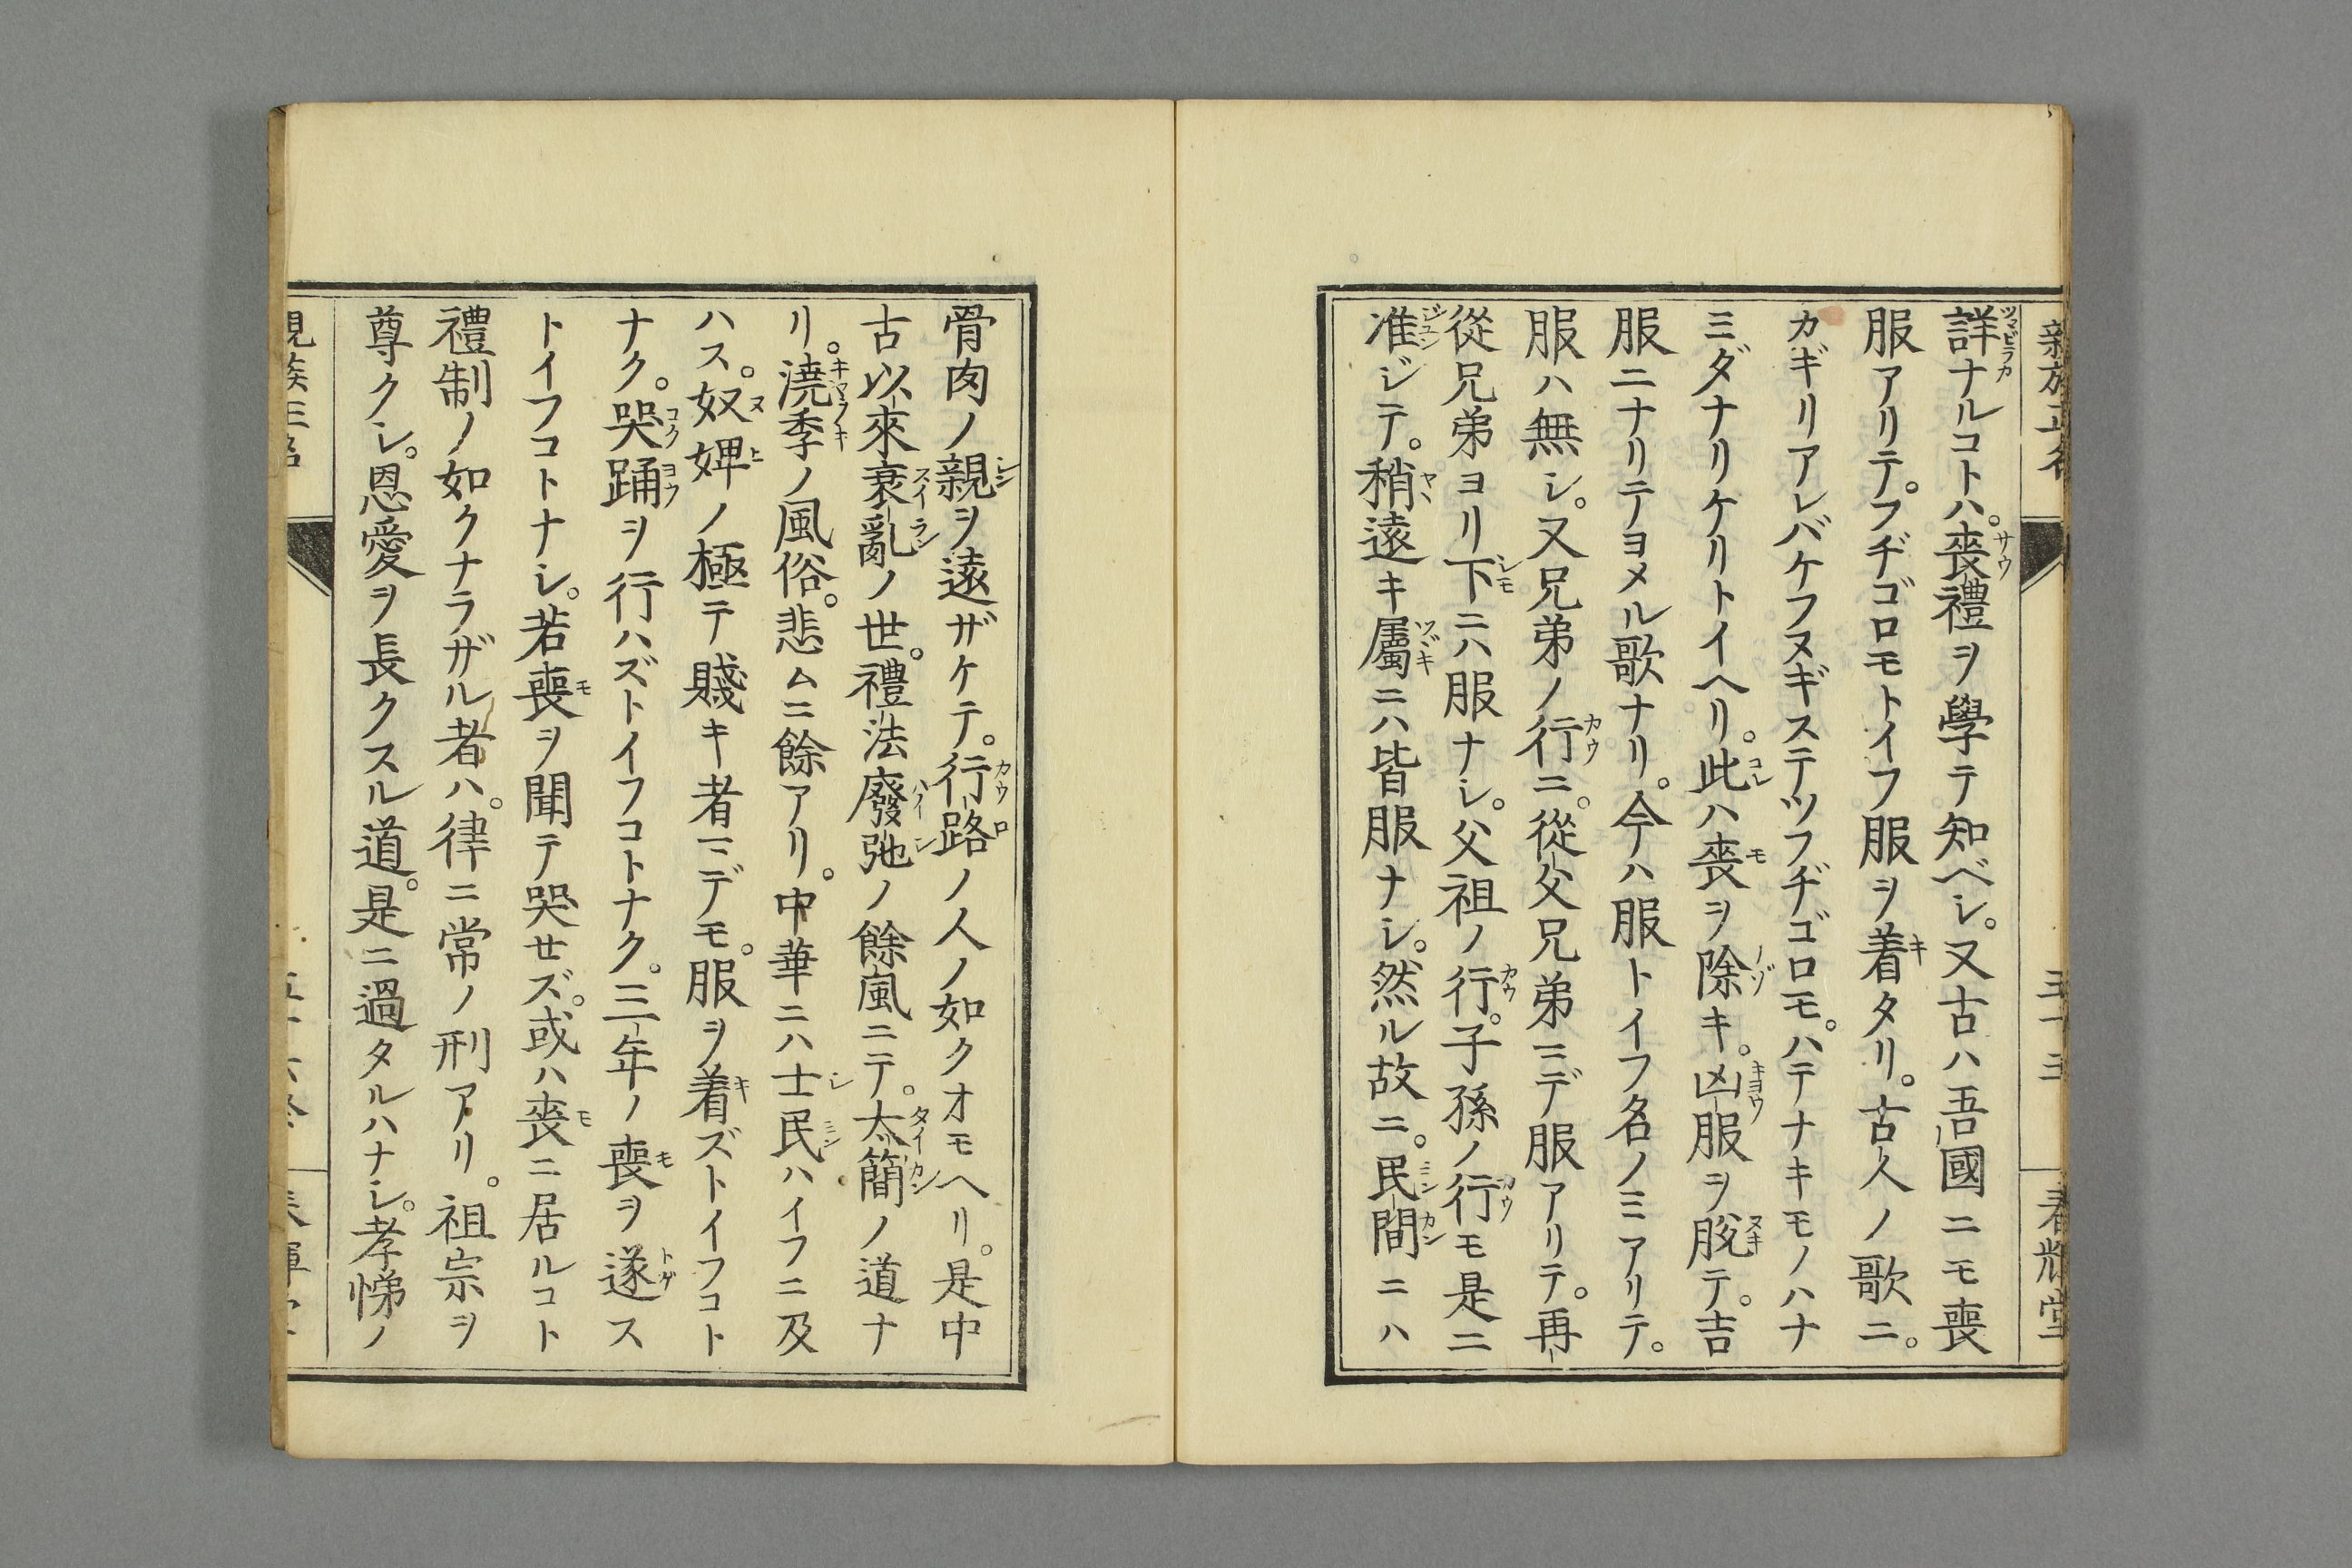 親族正名
五十五
春輝堂
詳ナルコトハ。喪禮ヲ學テ知ベシ。又古ハ吾國ニモ喪
服アリテ。フヂゴロモトイフ服ヲ着タリ。古人ノ歌ニ。
カギリアレバケフヌギステツフヂゴロモ。ハテナキモノハナ
ミダナリケリトイヘリ。此ハ喪ヲ除キ。凶服ヲ脫テ。吉
服ニナリテヨメル歌ナリ。今ハ服トイフ名ノミアリテ。
服ハ無シ。又兄弟ノ行ニ。從父兄弟ニデ服アリテ。再
從兄弟ヨリ下ニハ服ナシ。父祖ノ行。子孫ノ行モ是ニ
准ジテ。稍遠キ屬ニハ皆服ナシ。然ル故ニ。民間ニハ
骨肉ノ親ヲ遠ザケテ。行路ノ人ノ如クオモヘリ。是中
古以來衰亂ノ世。禮法廢弛ノ餘風ニテ。太簡ノ道ナ
リ。澆季ノ風俗。悲ムニ餘アリ。中華ニハ士民ハイフニ及
ハス。奴婢ノ極テ賤キ者マデモ。服ヲ着ズトイフコト
ナク。哭踊ヲ行ハズトイフコトナク。三年ノ喪ヲ遂ス
トイフコトナシ。若喪ヲ聞テ哭セズ。或ハ喪ニ居ルコト
禮制ノ如クナラザル者ハ。律ニ常ノ刑アリ。祖宗ヲ
尊クシ。恩愛ヲ長クスル道。是ニ過タルハナシ。孝悌ノ